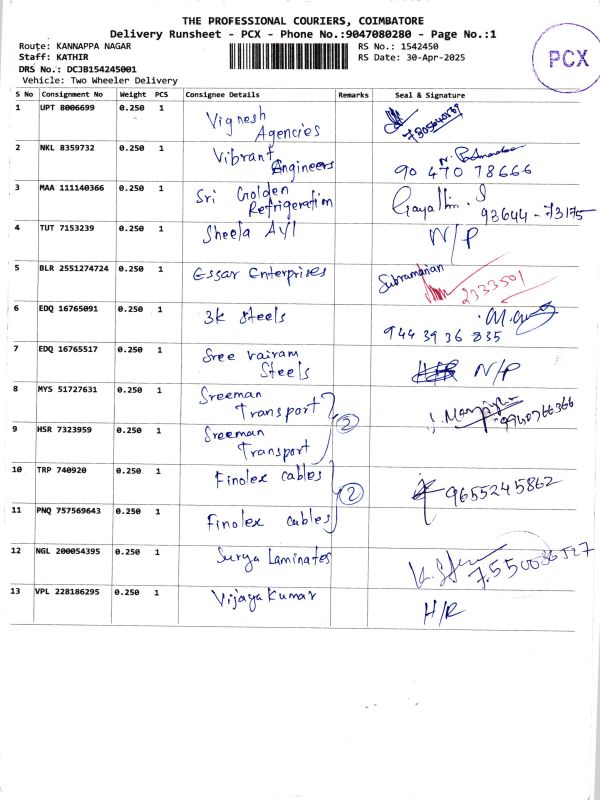 THE PROFESSIONAL COURIERS, COIMBATORE
Delivery Runsheet - PCX - Phone No.:9047080280 - Page No.:1
Route: KANNAPPA NAGAR RS No.: 1542450
Staff: KATHIR RS Date: 30-Apr-2025
DRS No.: DCJB154245001
Vehicle: Two Wheeler Delivery
PCX
S No Consignment No Weight PCS Consignee Details Remarks Seal & Signature
1 UPT 8006699 0.250 1 Vignesh
Agencies
2 NKL 8359732 0.250 1 Vibrant
Engineers 90 470 78666
3 MAA 111140366 0.250 1 Sri Golden
Refrigeration Gayathri. S
93644-73175
4 TUT 7153239 0.250 1 Sheela N/P
5 BLR 2551274724 0.250 1 Essar Enterprises Subramanian
2333501
6 EDQ 16765091 0.250 1 3k Steels
944 39 36 835
7 EDQ 16765517 0.250 1 Sree Vairam
Steels N/P
8 MYS 51727631 0.250 1 Sreeman
Transport 2
9 HSR 7323959 0.250 1 Sreeman
Transport
10 TRP 740920 0.250 1 Finolex cables 2 9655245862
11 PNQ 757569643 0.250 1 Finolex cables
12 NGL 200054395 0.250 1 Surya Laminates
13 VPL 228186295 0.250 1 Vijaya Kumar H/R